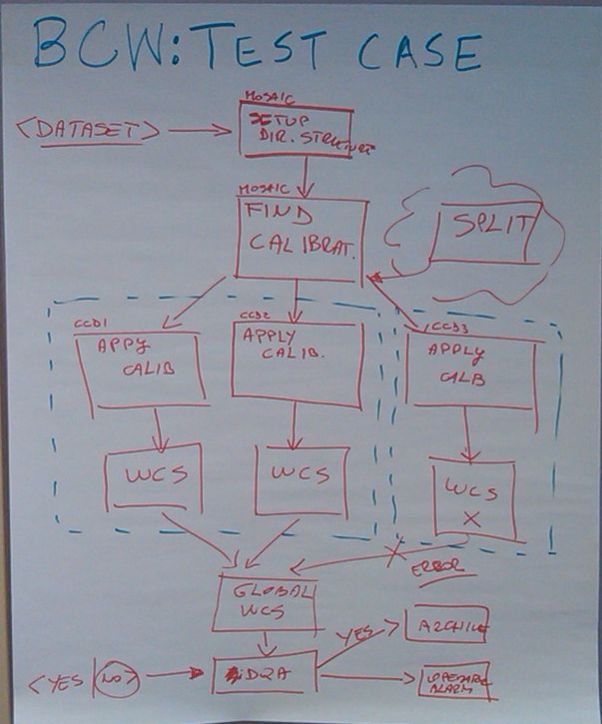 BCW: TEST CASE
MOSAIC
<DATASET>
SETUP
DIR. STRUCTURE
MOSAIC
FIND
CALIBRAT.
SPLIT
CCD1
APPY
CALIB
CCD2
APPLY
CALIB.
CCD3
APPLY
CALB
WCS
WCS
WCS
X
ERROR
GLOBAL
WCS
YES
ARCHIVE
<YES | NO>
DQA
ALARM